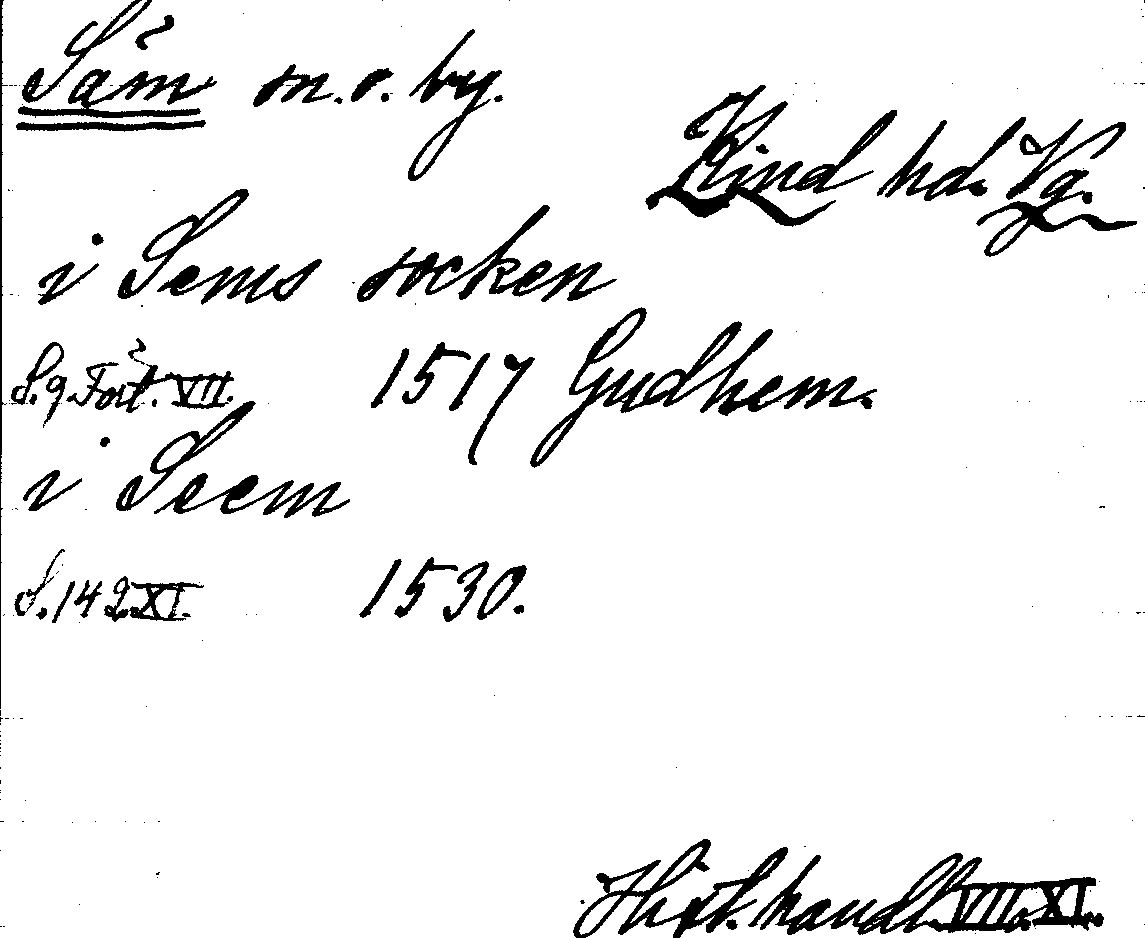 Säm sn. o. by.
Kind hd. Vg.
i Sems socken
S. 9. Fört. VII. 1517 Gudhem.
i Seem
S. 142 XI. 1530.
Hist. handl. VII o. XI.